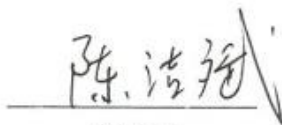 陈洁斌